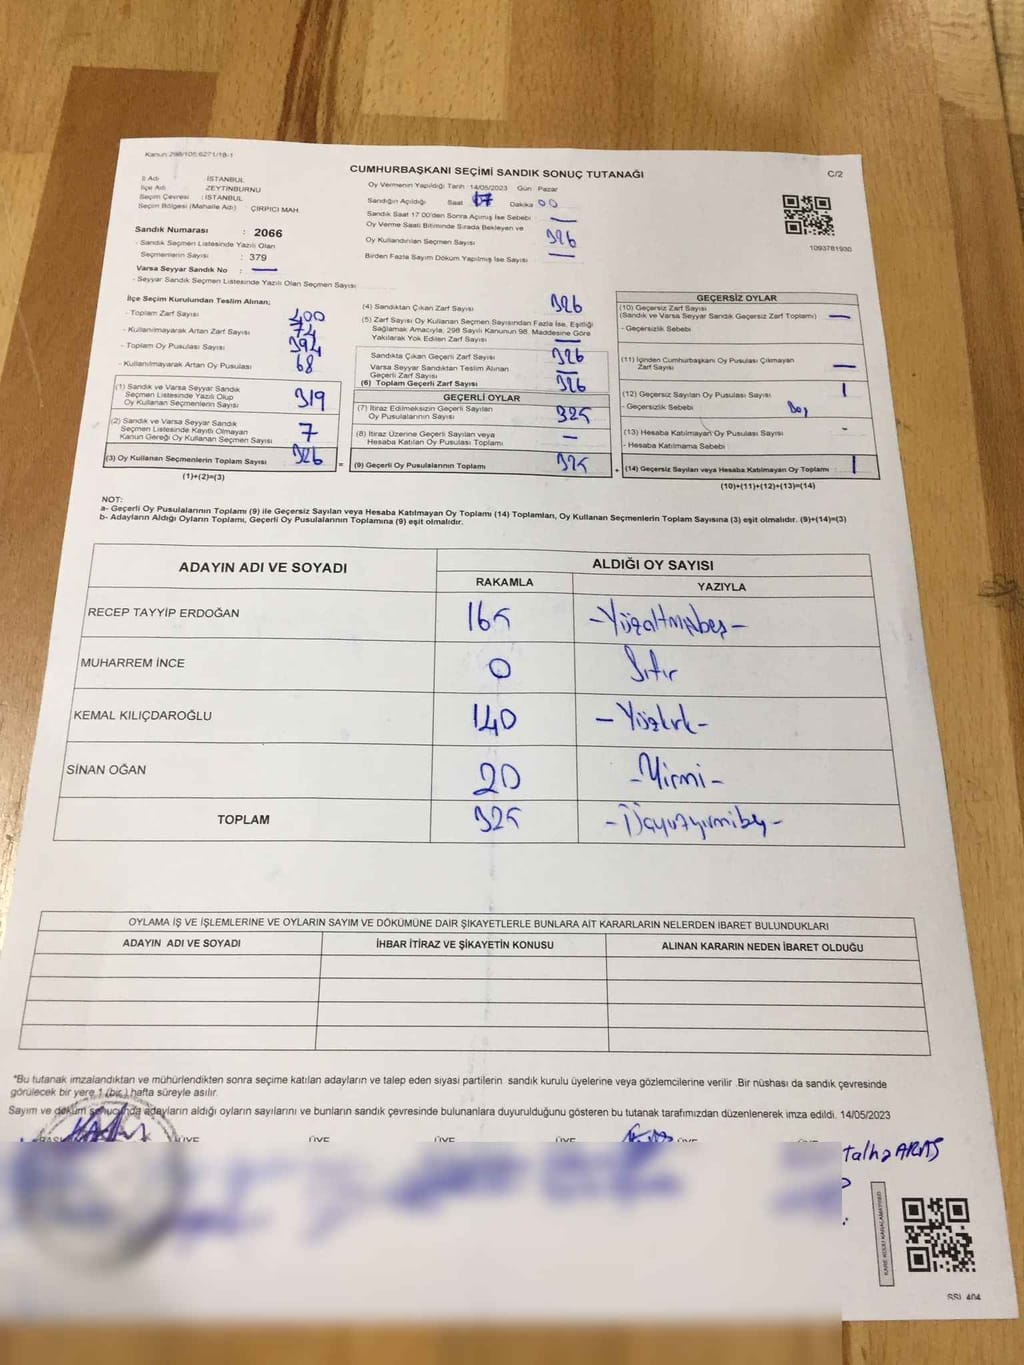 Kanun:298/105;6271/18-1
CUMHURBAŞKANI SEÇİMİ SANDIK SONUÇ TUTANAĞI
C/2
İl Adı : İSTANBUL
İlçe Adı : ZEYTİNBURNU
Seçim Çevresi : İSTANBUL
Seçim Bölgesi (Mahalle Adı) : ÇIRPICI MAH.
Sandık Numarası : 2066
- Sandık Seçmen Listesinde Yazılı Olan
Seçmenlerin Sayısı : 379
Varsa Seyyar Sandık No : —
- Seyyar Sandık Seçmen Listesinde Yazılı Olan Seçmen Sayısı:
Oy Vermenin Yapıldığı Tarih 14/05/2023 Gün Pazar
Sandığın Açıldığı Saat 17 Dakika 00
Sandık Saat 17:00'den Sonra Açımış İse Sebebi —
Oy Verme Saati Bitiminde Sırada Bekleyen ve
Oy Kullandırılan Seçmen Sayısı 326
Birden Fazla Sayım Döküm Yapılmış İse Sayısı —
1093781930
İlçe Seçim Kurulundan Teslim Alınan;
- Toplam Zarf Sayısı 400
- Kullanılmayarak Artan Zarf Sayısı 74
- Toplam Oy Pusulası Sayısı 394
- Kullanılmayarak Artan Oy Pusulası 68
(1) Sandık ve Varsa Seyyar Sandık
Seçmen Listesinde Yazılı Olup
Oy Kullanan Seçmenlerin Sayısı 319
(2) Sandık ve Varsa Seyyar Sandık
Seçmen Listesinde Kayıtlı Olmayan
Kanun Gereği Oy Kullanan Seçmen Sayısı 7
(3) Oy Kullanan Seçmenlerin Toplam Sayısı 326
(1)+(2)=(3)
(4) Sandıktan Çıkan Zarf Sayısı 326
(5) Zarf Sayısı Oy Kullanan Seçmen Sayısından Fazla İse, Eşitliği
Sağlamak Amacıyla, 298 Sayılı Kanunun 98. Maddesine Göre
Yakılarak Yok Edilen Zarf Sayısı —
Sandıkta Çıkan Geçerli Zarf Sayısı 326
Varsa Seyyar Sandıktan Teslim Alınan
Geçerli Zarf Sayısı —
(6) Toplam Geçerli Zarf Sayısı 326
GEÇERLİ OYLAR
(7) İtiraz Edilmeksizin Geçerli Sayılan
Oy Pusulalarının Sayısı 325
(8) İtiraz Üzerine Geçerli Sayılan veya
Hesaba Katılan Oy Pusulası Toplamı —
= (9) Geçerli Oy Pusulalarının Toplamı 325
GEÇERSİZ OYLAR
(10) Geçersiz Zarf Sayısı
(Sandık ve Varsa Seyyar Sandık Geçersiz Zarf Toplamı) —
- Geçersizlik Sebebi
(11) İçinden Cumhurbaşkanı Oy Pusulası Çıkmayan
Zarf Sayısı —
(12) Geçersiz Sayılan Oy Pusulası Sayısı 1
- Geçersizlik Sebebi Boş
(13) Hesaba Katılmayan Oy Pusulası Sayısı -
- Hesaba Katılmama Sebebi
+ (14) Geçersiz Sayılan veya Hesaba Katılmayan Oy Toplamı : 1
(10)+(11)+(12)+(13)=(14)
NOT:
a- Geçerli Oy Pusulalarının Toplamı (9) ile Geçersiz Sayılan veya Hesaba Katılmayan Oy Toplamı (14) Toplamları, Oy Kullanan Seçmenlerin Toplam Sayısına (3) eşit olmalıdır. (9)+(14)=(3)
b- Adayların Aldığı Oyların Toplamı, Geçerli Oy Pusulalarının Toplamına (9) eşit olmalıdır.
ADAYIN ADI VE SOYADI ALDIĞI OY SAYISI
RAKAMLA YAZIYLA
RECEP TAYYİP ERDOĞAN 165 -Yüzaltmışbeş-
MUHARREM İNCE 0 Sıfır
KEMAL KILIÇDAROĞLU 140 -Yüzkırk-
SİNAN OĞAN 20 -Yirmi-
TOPLAM 325 -Üçyüzyirmibeş-
OYLAMA İŞ VE İŞLEMLERİNE VE OYLARIN SAYIM VE DÖKÜMÜNE DAİR ŞİKAYETLERLE BUNLARA AİT KARARLARIN NELERDEN İBARET BULUNDUKLARI
ADAYIN ADI VE SOYADI İHBAR İTİRAZ VE ŞİKAYETİN KONUSU ALINAN KARARIN NEDEN İBARET OLDUĞU
*Bu tutanak imzalandıktan ve mühürlendikten sonra seçime katılan adayların ve talep eden siyasi partilerin sandık kurulu üyelerine veya gözlemcilerine verilir .Bir nüshası da sandık çevresinde
görülecek bir yere 1 (bir) hafta süreyle asılır.
Sayım ve döküm sonucunda adayların aldığı oyların sayılarını ve bunların sandık çevresinde bulunanlara duyurulduğunu gösteren bu tutanak tarafımızdan düzenlenerek imza edildi. 14/05/2023
ÜYE ÜYE ÜYE ÜYE ÜYE
talha ARAS
KARE KODU KARALAMAYINIZ
SSI 404